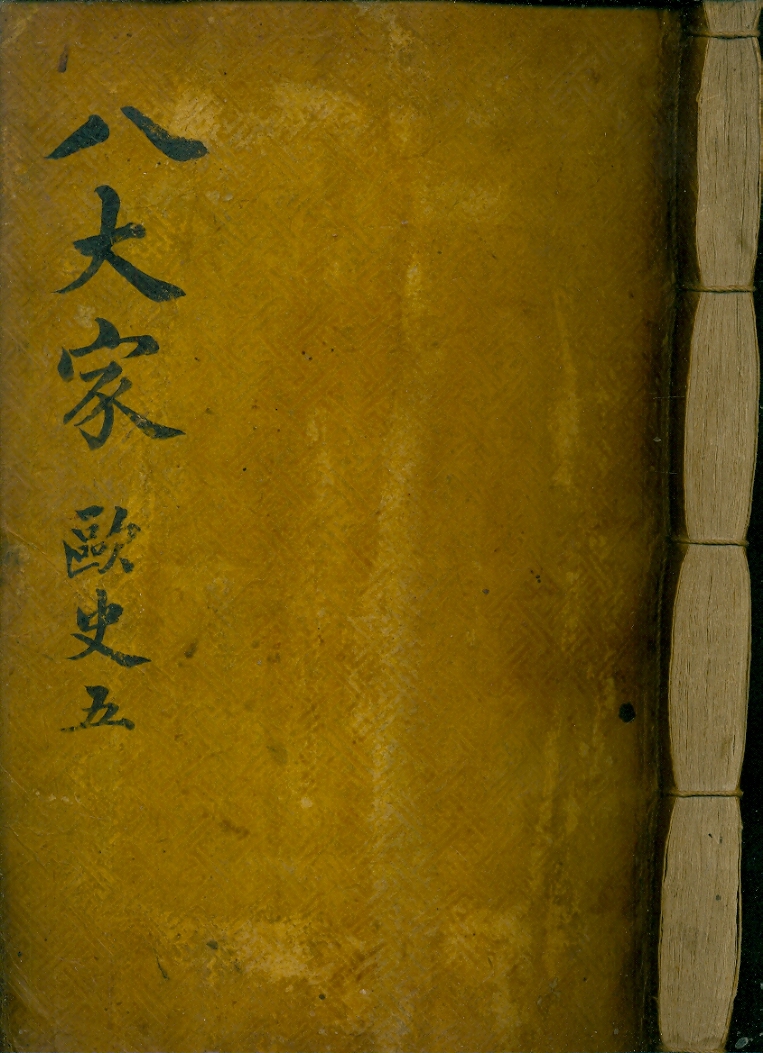 八大家 歐史 五